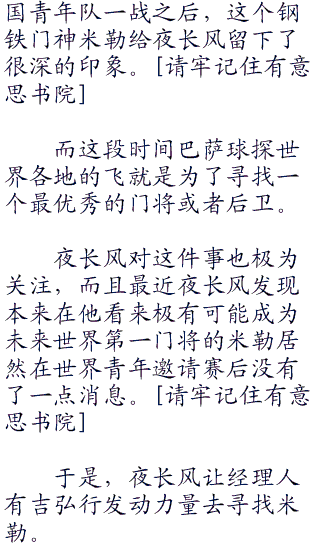 国青年队一战之后，这个钢
铁门神米勒给夜长风留下了
很深的印象。[请牢记住有意
思书院]
而这段时间巴萨球探世
界各地的飞就是为了寻找一
个最优秀的门将或者后卫。
夜长风对这件事也极为
关注，而且最近夜长风发现
本来在他看来极有可能成为
未来世界第一门将的米勒居
然在世界青年邀请赛后没有
了一点消息。[请牢记住有意
思书院]
于是，夜长风让经理人
有吉弘行发动力量去寻找米
勒。